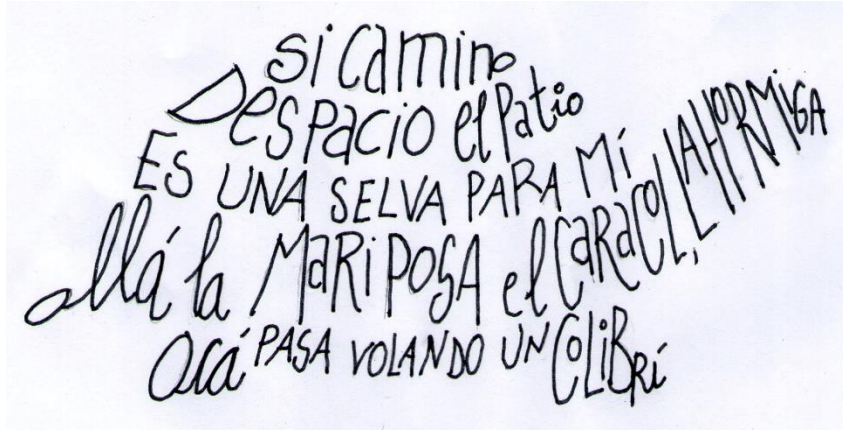 si camino
Despacio el Patio
Es UNA SELVA PARA Mí
allá la MaRiPOSA el CaRaCOL, LA HORMiGA
acá PASA VOLANDO UN COLiBRí